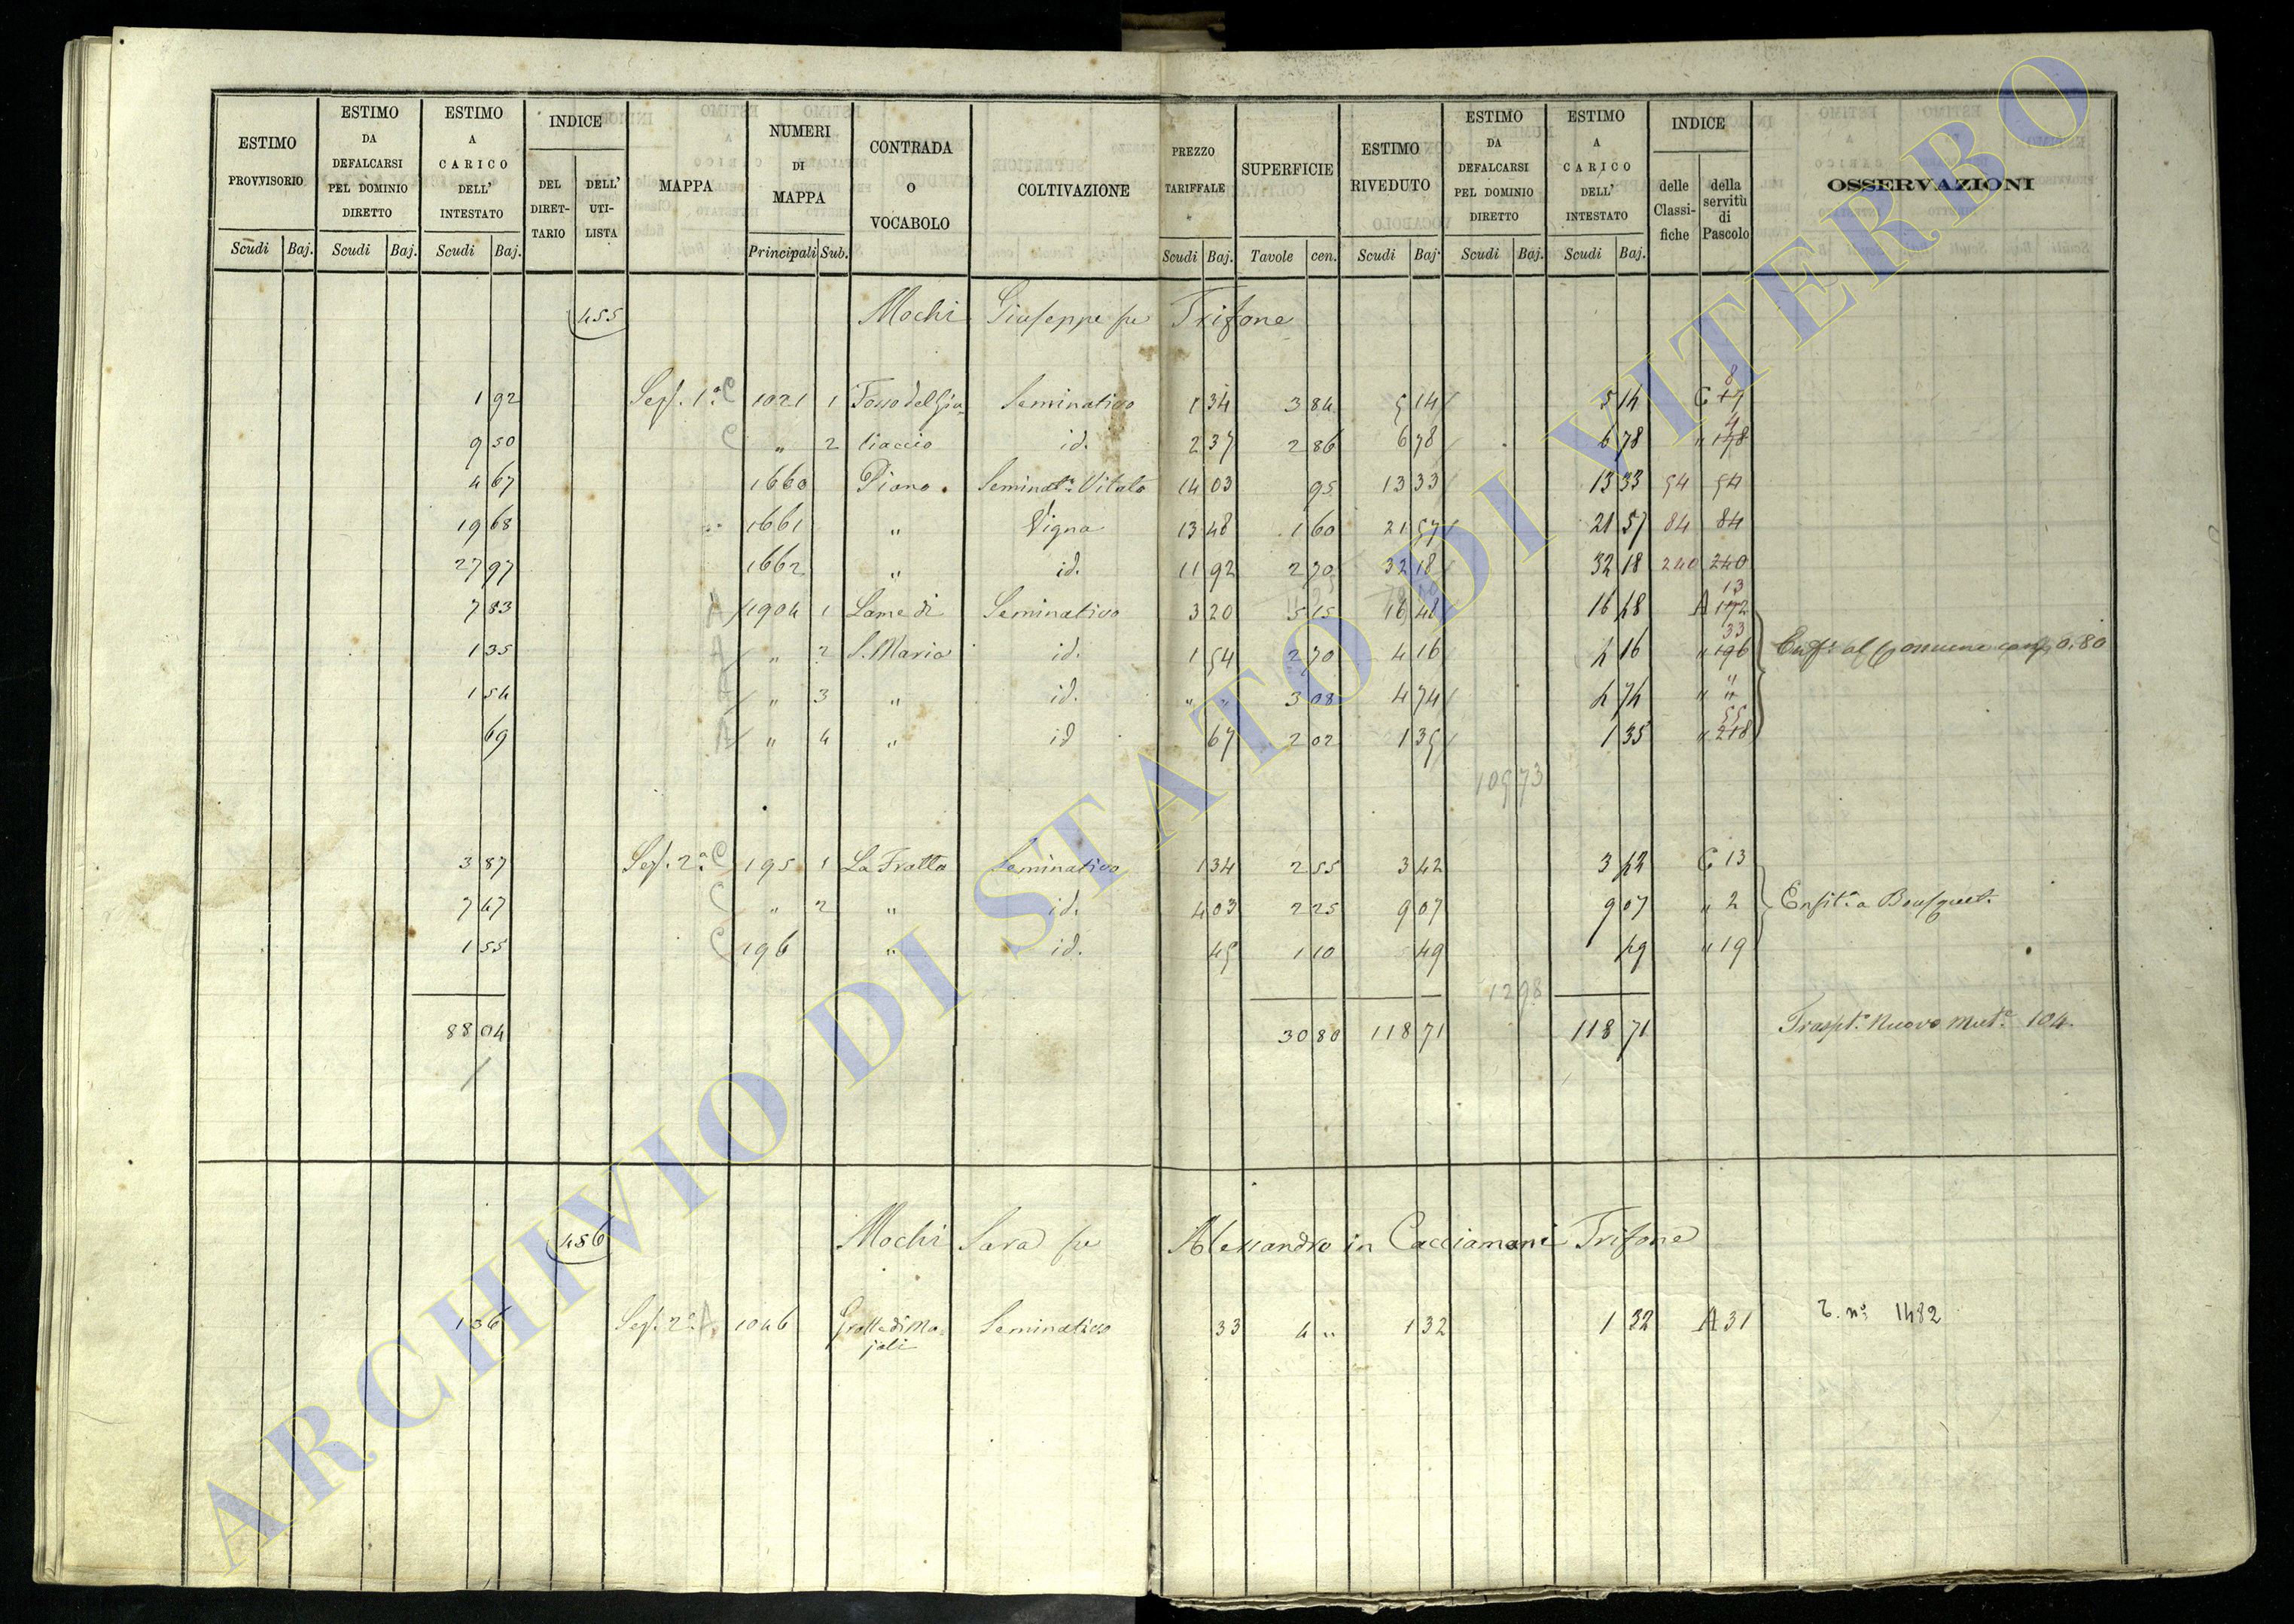 ESTIMO PROVVISORIO | ESTIMO DA DEFALCARSI PEL DOMINIO DIRETTO | ESTIMO A CARICO DELL' INTESTATO | INDICE | MAPPA | NUMERI DI MAPPA | CONTRADA O VOCABOLO | COLTIVAZIONE | PREZZO TARIFFALE | SUPERFICIE | ESTIMO RIVEDUTO | ESTIMO DA DEFALCARSI PEL DOMINIO DIRETTO | ESTIMO A CARICO DELL' INTESTATO | INDICE | OSSERVAZIONI
DEL DIRETTARIO | DELL' UTILISTA | delle Classifiche | della servitù di Pascolo
Scudi | Baj. | Scudi | Baj. | Scudi | Baj. | Principali | Sub. | Scudi | Baj. | Tavole | cen. | Scudi | Baj. | Scudi | Baj. | Scudi | Baj.
455 Mochi Giuseppe fu Trifone
1 92 Sez. 1a C 1021 1 Fosso del Gra- Seminativo 1 34 3 84 5 14 5 14 C 8
9 50 C " 2 liaccio id. 2 37 2 86 6 78 6 78 " 178 4
4 67 1660 Piano Seminato Vitato 14 03 95 13 33 13 33 54 54
19 68 1661 " Vigna 13 48 1 60 21 57 21 57 84 84
27 97 1662 " id. 11 92 2 70 32 18 32 18 240 240
7 83 A 1904 1 Lame di Seminativo 3 20 5 15 16 48 16 48 A 172 13
1 35 A " 2 S. Maria id. 1 54 2 70 4 16 4 16 " 196 33 0,80
1 54 A " 3 " id. " " 3 08 4 74 4 74 " "
69 A " 4 " id 67 2 02 1 35 1 35 " 218 55
109 73
3 87 Sez. 2a C 195 1 La Fratta Seminativo 1 34 2 55 3 42 3 42 C 13
7 47 C " 2 " id. 4 03 2 25 9 07 9 07 " 2 Enfit. a Bousquet.
1 55 C 196 " id. 45 1 10 49 49 " 19
12 98
88 04 30 80 118 71 118 71 Traspt. Nuovo Mut. 104.
456 Mochi Sara fu Alessandro in Cacciamani Trifone
1 36 Sez. 2a A 1046 Grotte di Ma- Seminativo 33 4 " 1 32 1 32 A 31 T. n° 1482
joli
ARCHIVIO DI STATO DI VITERBO